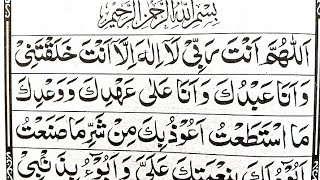 بِسْمِ اللهِ الرَّحْمٰنِ الرَّحِيْمِ
اَللّٰهُمَّ اَنْتَ رَبِّيْ لَاۤ اِلٰهَ اِلَّاۤ اَنْتَ خَلَقْتَنِيْ
وَاَنَا عَبْدُكَ وَاَنَا عَلٰى عَهْدِكَ وَوَعْدِكَ
مَا اسْتَطَعْتُ اَعُوْذُ بِكَ مِنْ شَرِّ مَا صَنَعْتُ
اَبُوْٓءُ لَكَ بِنِعْمَتِكَ عَلَيَّ وَاَبُوْٓءُ بِذَنْۢبِيْ